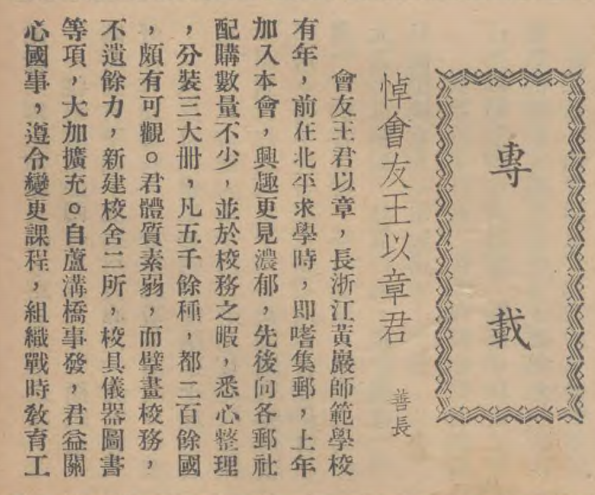 專載
悼會友王以章君
善長
會友王君以章，長浙江黃巖師範學校
有年，前在北平求學時，即嗜集郵，上年
加入本會，興趣更見濃郁，先後向各郵社
配購數量不少，並於校務之暇，悉心整理
，分裝三大冊，凡五千餘種，都二百餘國
，頗有可觀。君體質素弱，而擘畫校務，
不遺餘力，新建校舍二所，校具儀器圖書
等項，大加擴充。自蘆溝橋事發，君益關
心國事，遵令變更課程，組織戰時教育工